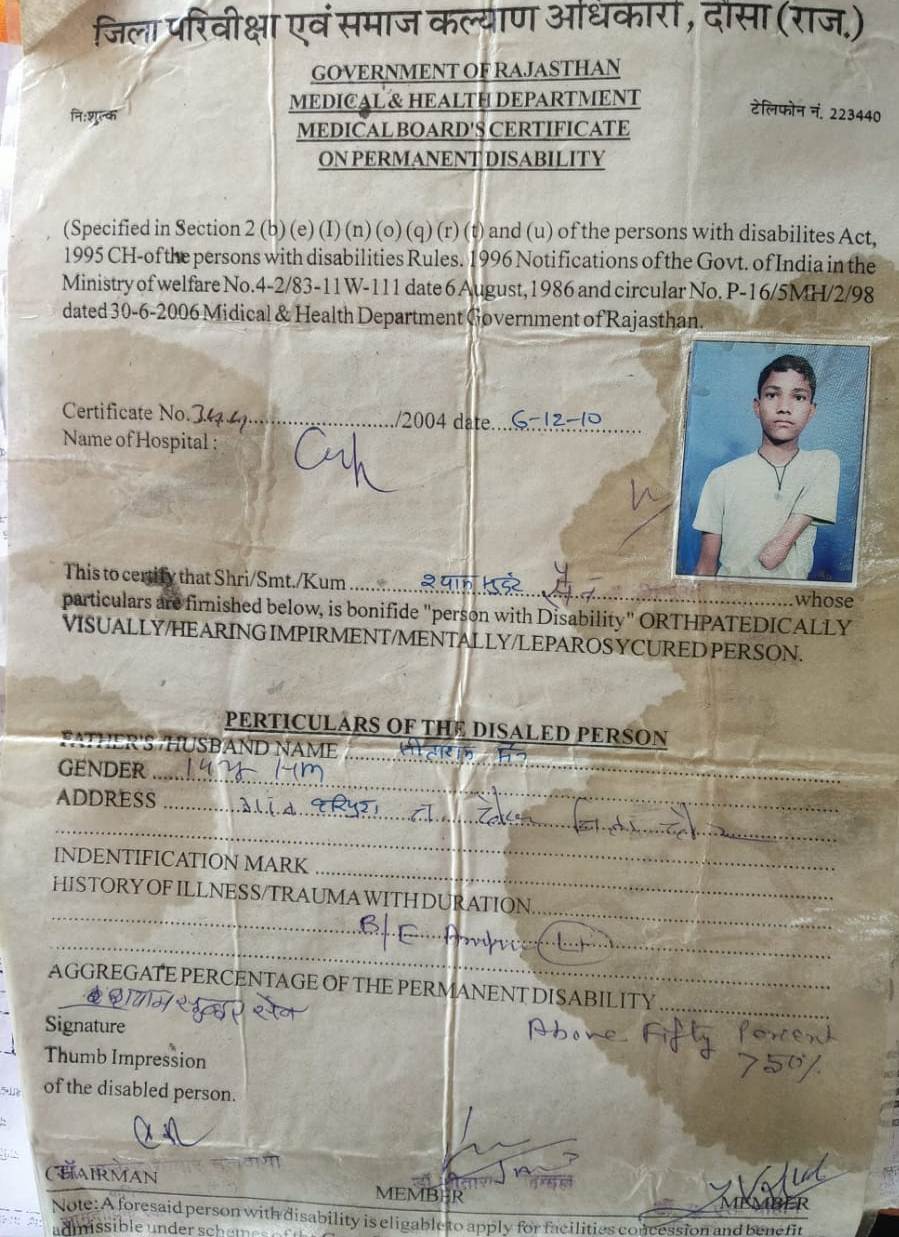 जिला परिवीक्षा एवं समाज कल्याण अधिकारी, दौसा (राज.)
GOVERNMENT OF RAJASTHAN
MEDICAL & HEALTH DEPARTMENT
निःशुल्क
टेलिफोन नं. 223440
MEDICAL BOARD'S CERTIFICATE
ON PERMANENT DISABILITY
(Specified in Section 2 (b) (e) (I) (n) (o) (q) (r) (t) and (u) of the persons with disabilites Act,
1995 CH-of the persons with disabilities Rules. 1996 Notifications of the Govt. of India in the
Ministry of welfare No.4-2/83-11W-111 date 6 August, 1986 and circular No. P-16/5MH/2/98
dated 30-6-2006 Midical & Health Department Government of Rajasthan.
Certificate No. ............................/2004 date...6-12-10
Name of Hospital :
This to certify that Shri/Smt./Kum ........................whose
particulars are firnished below, is bonifide "person with Disability" ORTHPATEDICALLY
VISUALLY/HEARING IMPIRMENT/MENTALLY/LEPAROSYCURED PERSON.
PERTICULARS OF THE DISALED PERSON
FATHER'S /HUSBAND NAME ........सीताराम
GENDER ......19 M
ADDRESS ..................
INDENTIFICATION MARK ..................
HISTORY OF ILLNESS/TRAUMA WITH DURATION..................
B/E
AGGREGATE PERCENTAGE OF THE PERMANENT DISABILITY..................
Above Fifty Percent
750%
Signature
Thumb Impression
of the disabled person.
CHAIRMAN
MEMBER
MEMBER
Note: A foresaid person with disability is eligable to apply for facilities concession and benefit
admissible under schemes of the